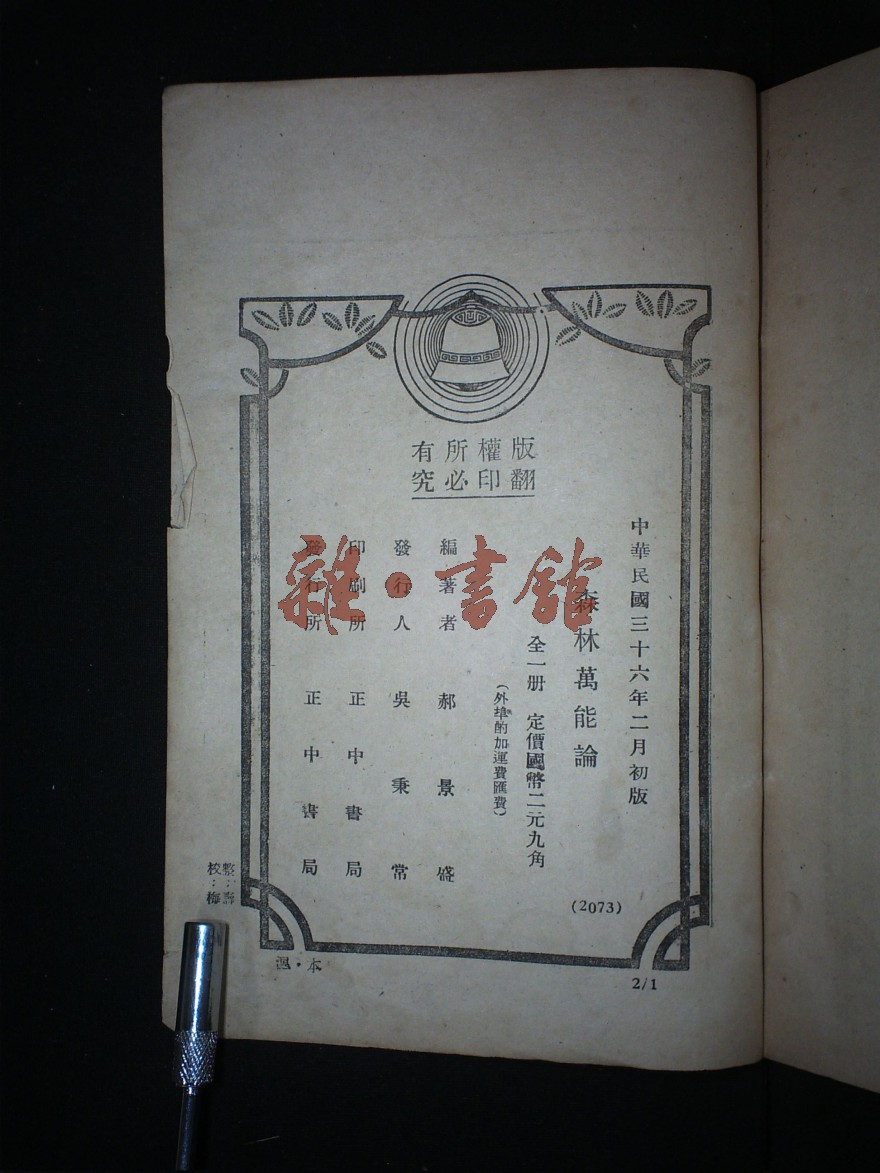 版權所有
翻印必究
中華民國三十六年二月初版
森林萬能論
全一册 定價國幣二元九角
(外埠酌加運費匯費)
編著者 郝景盛
發行人 吳秉常
印刷所 正中書局
發行所 正中書局
(2073)
整:
校:梅
本·溫
2/1
雜·書館